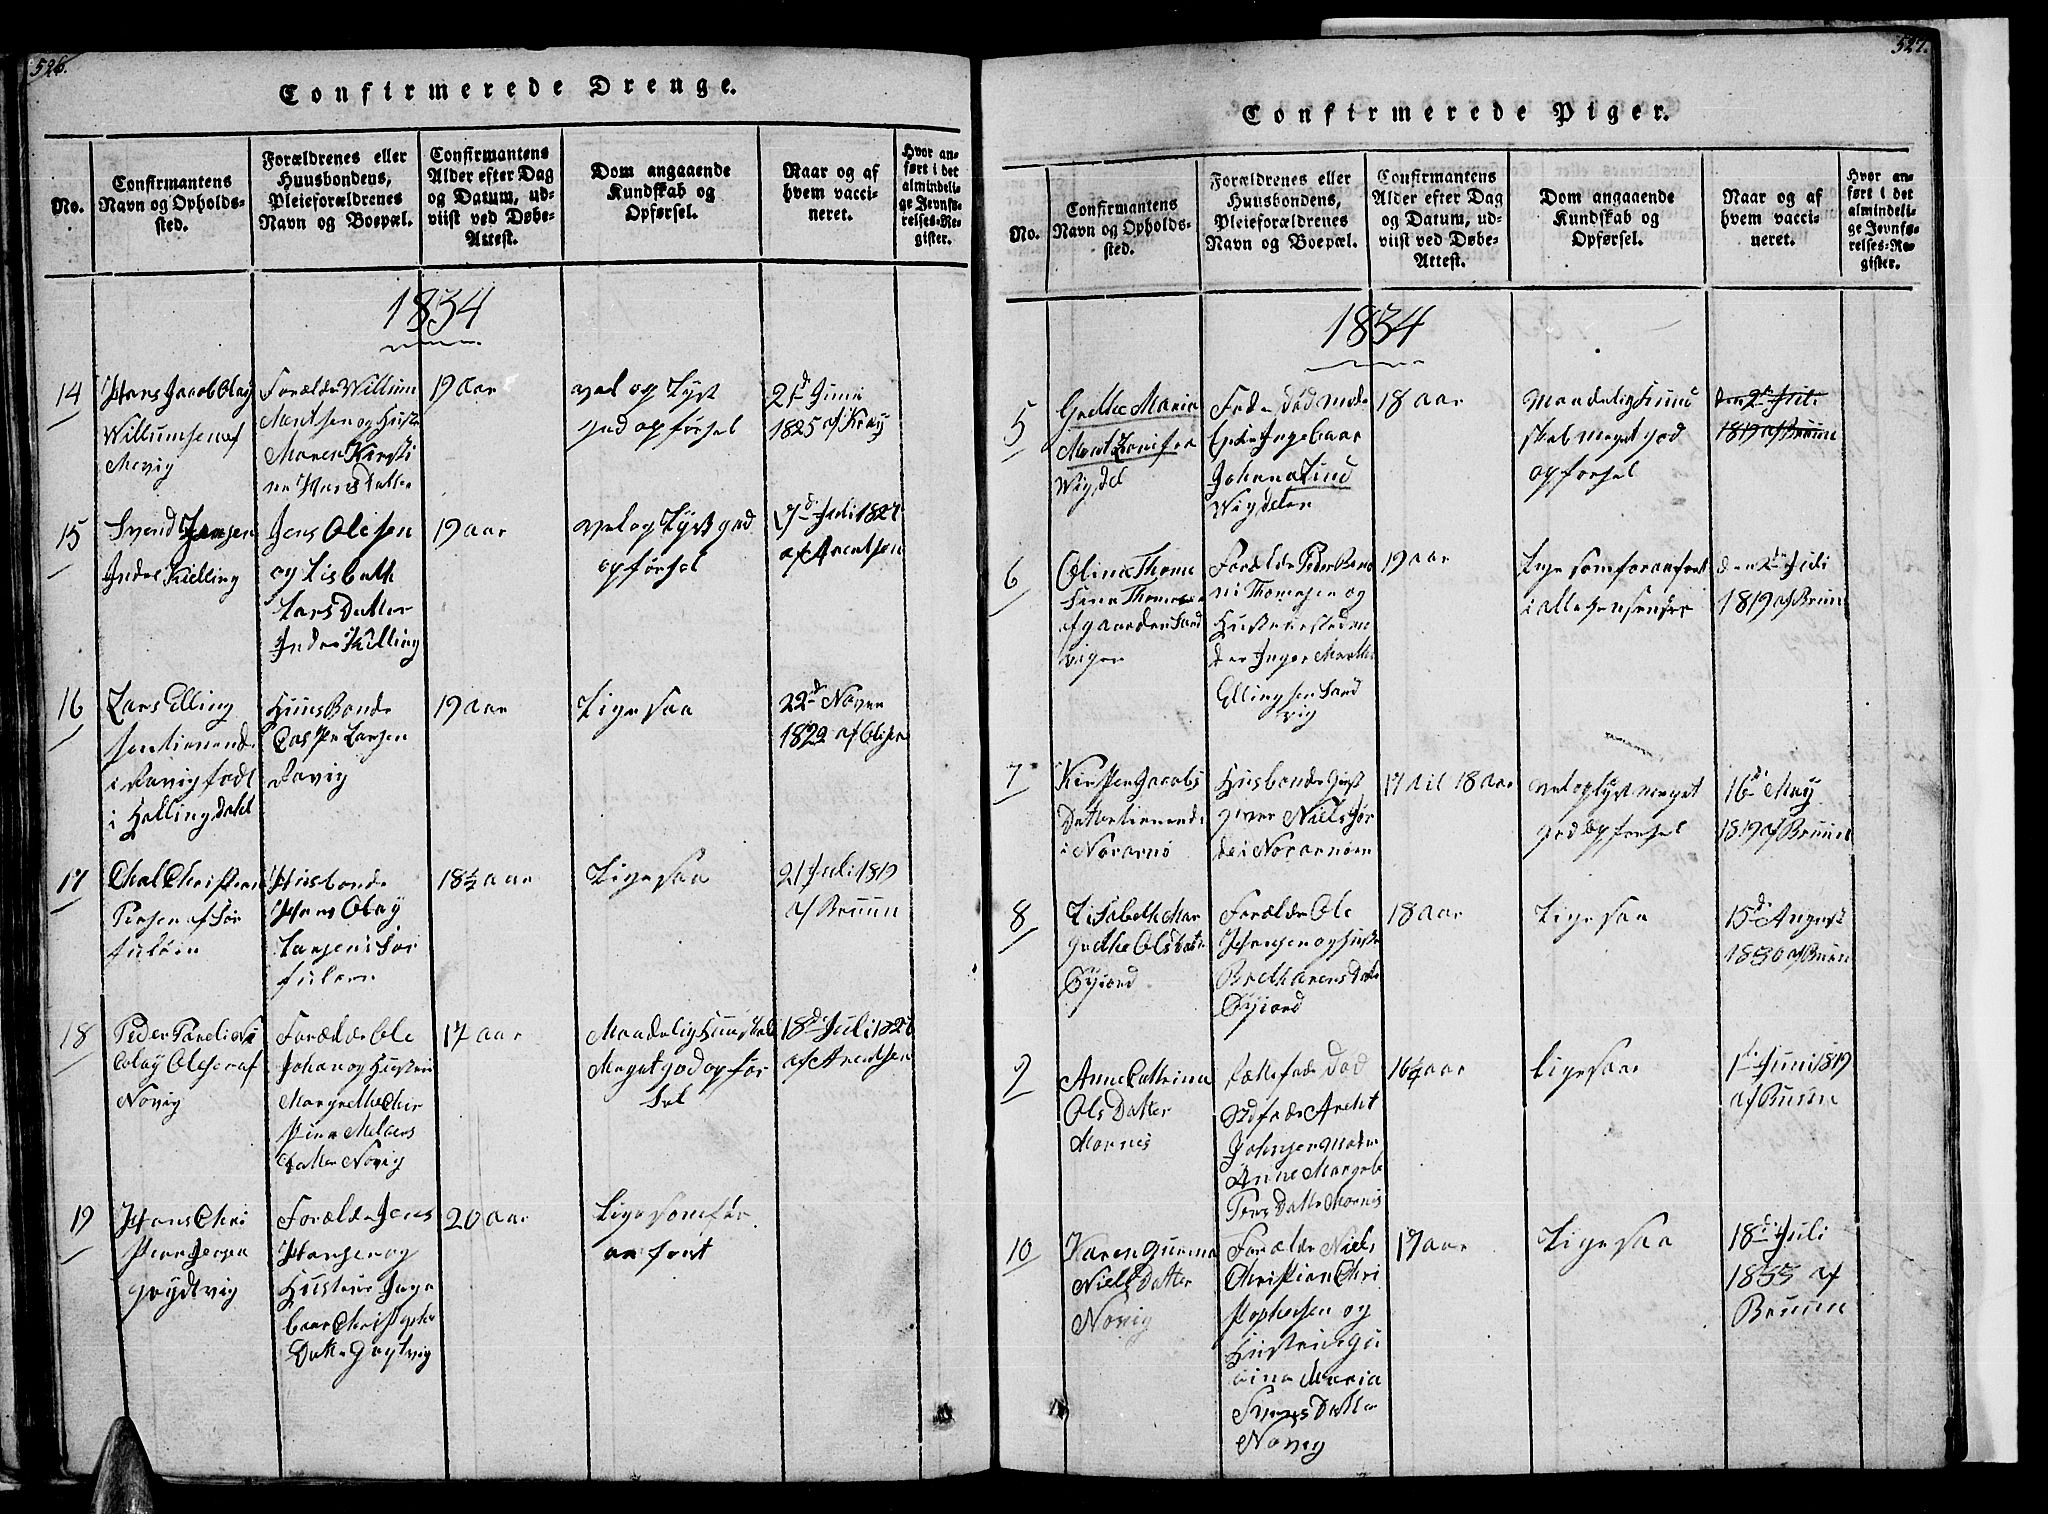 526.
Confirmerede Drenge.
No.
Confirmantens
Navn og Opholds-
sted.
Forældrenes eller
Huusbondens,
Pleieforældrenes
Navn og Boepæl.
Confirmantens
Alder efter Dag
og Datum, ud-
viist ved Døbe-
Attest.
Dom angaaende
Kundskab og
Opførsel.
Naar og af
hvem vacci-
neret.
Hvor an-
ført i det
almindeli-
ge Jevnfø-
relses-Re-
gister.
1834
14
Hans Jacob Olay
Willumsen af
Mevig
Forælde Willum
Mentsen og Huste
Maren Kirsti
ne Hans Datter
19 Aar
vel oplyst
god opførsel
21d Juni
1825 af Kray
15
Svend Jensen
Indre Kielling
Jens Olesen
og Lisbeth
Lars Datter
Indre Killing
19 aar
vel oplyst god
opførsel
7d Juli 1827
af Arentsen
16
Lars Elling
sen tienende
i Ravig født
i Hellingdahl
Huus Bonde
Casper Larsen
Ravig
19 Aar
Lige saa
22d Novem
1822 af Olsen
17
Christen
af Sør
Husbonde
Hans Olay
Larsen Sør
18½ aar
Lige saa
21 Juli 1819
af Bruun
18
Peder
Olay Olesen af
Novig
Forælde Ole
Johan og Hustru
Margrethe Chri
stine
Datter Novig
17 aar
Maadelig Kundskab
Meget god opfør
sel
18d Juli 182
af Arentsen
19
Hans Chri
stian Jensen
Forælde Jens
Hansen og
Hustrue Inge
baar Christophe
Datter
20 aar
Lige som for
an ført
527.
Confirmerede Piger.
No.
Confirmantens
Navn og Opholds-
sted.
Forældrenes eller
Huusbondens,
Pleieforældrenes
Navn og Boepæl.
Confirmantens
Alder efter Dag
og Datum, ud-
viist ved Døbe-
Attest.
Dom angaaende
Kundskab og
Opførsel.
Naar og af
hvem vacci-
neret.
Hvor an-
ført i det
almindeli-
ge Jevnfø-
relses-Re-
gister.
1834
5
Grethe Maria
Mentzoni fra
Wigdel
Fader død Mode
Ingebaar
Johana Lund
Wigdelen
18 aar
Maadelig Kund
skab meget god
opførsel
den 2d Juli
1819 af Bruun
6
Oline Thoma
Sandvigen
Forælde Peder
Thomesen og
Hustrue
Inger Marthe
Ellingsen Sand
vig
19 aar
Lige som foranført
i alle henseender
den 2d Juli
1819 af Bruun
7
Kirsten Jacobs
Datter tienende
i Nordarnø
Husbonde
giver Niels Jør
de i Nordarnøen
17 til 18 aar
vel oplyst meget
god Opførsel
16d May
1819 af Bruun
8
Lisabeth Mar
grethe Olsdatte
Forælde Ole
Hansen og Huste
Berith Arens Datte
18 aar
Lige saa
15d August
1830 af Bruun
9
Anne Cathrina
Ols Datter
Mornes
død
Arent
Johnsen Moder
Anne Margrete
Datte Mornes
16¼ aar
Lige saa
1d Juni 1819
af Bruun
10
Karen
Niels Datter
Novig
Forælde Niels
Christian Chri
stophersen og
Hustrue Gu
rina Maria
Datter
Novig
17 aar
Lige saa
18d Juli
1833 af
Bruun